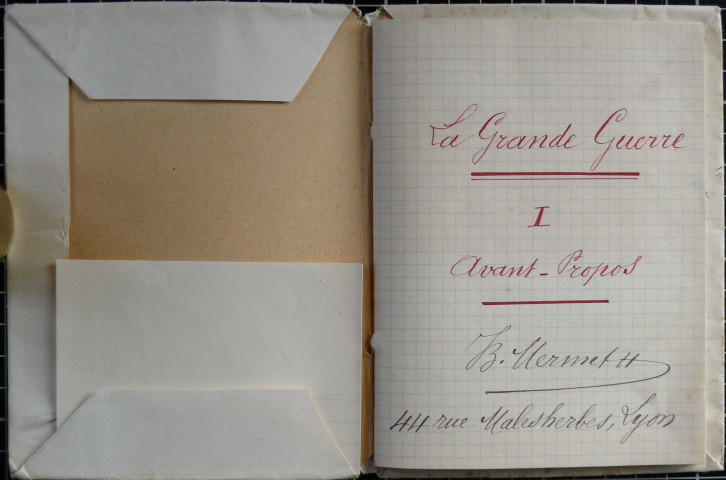 La Grande Guerre
I
Avant-Propos
B. Mermet
44 rue Malesherbes, Lyon